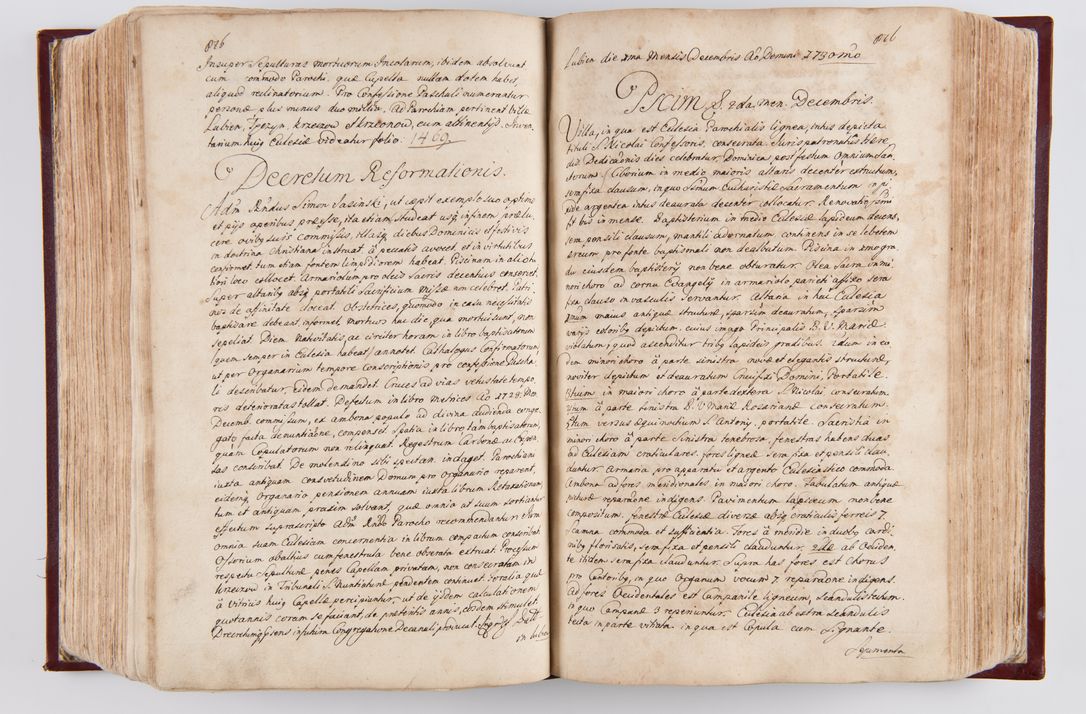 826
Insuper Sepulturas mortuorum Incolarum, ibidem absolvunt
cum commodo Parochi. quæ Capella nullam dotem habet
aliquod reclinatorium. Pro Confessione Paschali numerantur
personæ plus minus duo millia. Ad Parochiam pertinent Villæ
Lubien, Tęczyn, Krzeszow et Krzeczonow, cum attinentijs. Inven
tarium hujus Ecclesiæ videatur folio. 1469.
Decretum Reformationis.
Adm Rndus Simon Jasinski, ut cæpit exemplo suo optimo
et pijs operibus præesse, ita etiam studeat usque in finem prælu
cere ovibus suis commissis, illasque diebus Dominicis et festivis
in doctrina Christiana instruat, à peccatis avocet, et in virtutibus
confirmet. tum etiam fontem limpidiorem habeat. Piscinam in alio
loco collocet. Armariolum pro oleis Sacris decentius conservet.
Super altaribus absque portatili Sacrificium Missæ non celebret. Patri
nos de affinitate doceat. Obstetrices, quomodo in casu necessitatis
baptisare debeant, informet. mortuos hac die, qua mortui sunt, non
sepeliat. Diem Nativitatis, ac circiter horam in libro baptisatorum
(quem semper in Ecclesia habeat) annotet. Cathalogus Confirmatorum,
ut per Organarium tempore Conscriptionis, pro confessione Pascha
li describatur, eidem demandet. Cruces ad vias vetustate tempo
ris deterioratas tollat. Defectum in libro Metrices Ao 1728. Mo
Decemb. commissum, ex ambona populo ad divina audienda congre
gato facta denuntiatione, compenset. Spatia in libro tam baptisatorum,
quàm Copulatorum non relinquat. Regestrum Carbonæ ac Expen
sas conscribat. De molendino sibi spectan. indaget. Parochiani
iuxta antiquam consvetudinem Domum pro Organario reparent,
eidemque Organario pensionem annuam iuxta librum Retaxationum,
tum et antiquam, praxim solvant, quæ omnia ut suum sortiantur
effectum suprascripto Adm Rndo Parocho recommendantur.
omnia suam Ecclesiam concernentia in librum compactum conscribat.
Ossorium aballius cum fenestrula bene obserata extruat. Processum
respectu Sepulturæ penes Capellam privatam, non consecratam in
Krzeszow in Tribunali S. Nuntiaturæ pendentem continuet.
à Vitricis hujus Capellæ percipiuntur, ut de ijsdem calculationem
quotannis coram se faciant, de prætentis annis, eosdem stimulet
Decretumque præsens in futura Congregatione Decanali producat.
in Lubien
826
Lubien die 2ma Mensis Decembris Ao Domini 1730mo
Pscim d. 2da. men. Decembris.
Villa, in qua est Ecclesia Parochialis lignea, intus depicta
tituli S. Nicolai Confessoris, consecrata. Juris patronatus
dies Dedicaonis dies celebratur, Dominica post festum Omnium San
ctorum. Ciborium in medio maioris altaris decenter extructum,
sera fixa clausum, in quo Ssmum Eucharistiæ Sacramentum in pi
xide argentea intus deaurata decenter collocatur. Renovatio
fit bis in mense. Baptisterium in medio Ecclesiæ lapideum decens,
sera pensili clausum, mantili adornatum continens in se lebetem
æreum pro fonte baptismali non dealbatum. Piscina in 2mo gra
du ejusdem baptisterij non bene obturatur. Olea Sacra in mi
nori choro ad cornu Evangelij in armariolo parieti affixo sera
fixa clauso in vasculis servantur. Altaria in hac Ecclesia
1mum maius antiquæ structuræ, sparsim deauratum, sparsim
varijs coloribus depictum. cuius imago Principalis B. V. Mariæ
violatum, quod ascenditur tribus lapideis gradibus. 2dum in eo
dem minori choro à parte sinistra novæ et elegantis structuræ,
noviter depictum et deauratum Crucifixi Domini, Portatile.
3tium in maiori choro à parte dextera S. Nicolai, consecratum.
4tum à parte sinistra B. V. Mariæ Rosarianæ Consecratum.
5tum versus æquinoctium S. Antonij, portatile. Sacristia in
minori choro à parte sinistra tenebrosa, fenestras habens duas
ad Ecclesiam craticulares. fores ligneæ sera fixa et pensili clau
duntur. Armaria pro apparatu et argento Ecclesiastico commoda.
Ambona ad fores meridionales in maiori choro. Tabulatum antiquæ
picturæ reparaone indigens. Pavimentum latericeum non bene
compositum. fenestræ Ecclesiæ diversæ absque craticulis ferreis 7.
Scamna commoda et sufficientia. Fores à meridie in duobus cardi
nibus floristis, sera fixa et pensili clauduntur. 2dæ ab Occiden
te itidem sera fixa clauduntur. Supra has fores est Chorus
pro Cantoribus, in quo Organum vocum 7. reparaone indigens.
Ad fores Occidentales est Campanile ligneum, scandulis tectum.
in quo Campanæ 3 reperiuntur. Ecclesia ab extra scandulis
tecta in parte vitiata. in qua est Copula cum Signante.